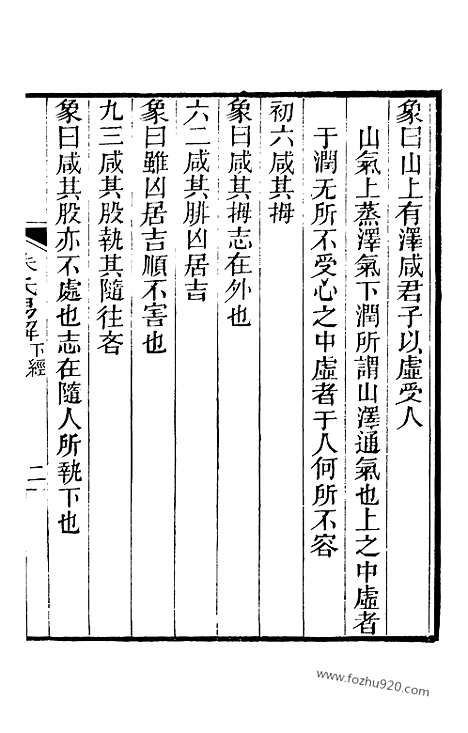 象曰山上有澤咸君子以虛受人
山氣上蒸澤氣下潤所謂山澤通氣也上之中虛者
于潤无所不受心之中虛者于人何所不容
初六咸其拇
象曰咸其拇志在外也
六二咸其腓凶居吉
象曰雖凶居吉順不害也
九三咸其股執其隨往吝
象曰咸其股亦不處也志在隨人所執下也
氏易解 下經 二
www.fozhu920.com